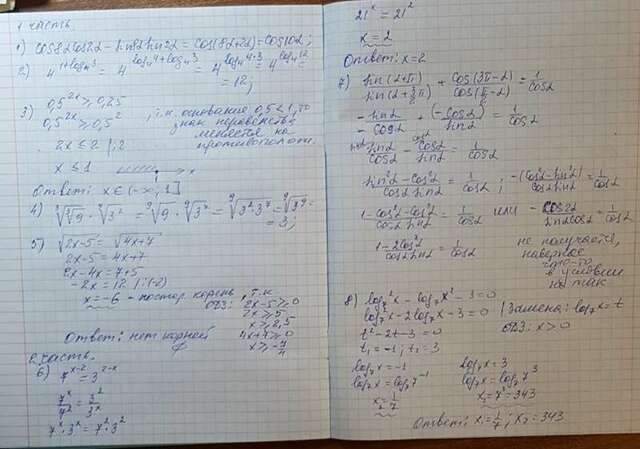 1 часть.
1) cos8α cos2α - sin8α sin2α = cos(8α+2α) = cos10α;
2) 4^(1+log₄3) = 4^(log₄4+log₄3) = 4^(log₄4·3) = 4^(log₄12) =
= 12;
3) 0,5^(2x) ≥ 0,25
0,5^(2x) ≥ 0,5² , т.к. основание 0,5<1, то
знак неравенства
меняется на
противополож.
2x ≤ 2 |:2
x ≤ 1
Ответ: x ∈ (-∞; 1]
4) ⁹√9 · ⁹√3⁷ = ⁹√(3²·3⁷) = ⁹√3⁹ =
= 3;
5) √(2x-5) = √(4x+7)
2x-5 = 4x+7
2x-4x = 7+5
-2x = 12 |:(-2)
x = -6 - постор. корень, т.к.
ОДЗ: 2x-5 ≥ 0
2x ≥ 5
x ≥ 2,5
4x+7 ≥ 0
x ≥ -7/4
Ответ: нет корней
2 часть.
6) 7^(x-2) = 3^(2-x)
7^x/7² = 3²/3^x
7^x · 3^x = 7² · 3²
21^x = 21²
x = 2
Ответ: x=2
7) sin(α+π)/sin(α+3π/2) + cos(3π-α)/cos(π/2-α) = 1/cosα
-sinα/-cosα + (-cosα)/sinα = 1/cosα
sinα/cosα - cosα/sinα = 1/cosα
(sin²α-cos²α)/(cosα sinα) = 1/cosα ; -(cos²α-sin²α)/(cosα sinα) = 1/cosα
(1-cos²α-cos²α)/(cosα sinα) = 1/cosα или - cos2α/(sinα cosα) = 1/cosα
(1-2cos²α)/(cosα sinα) = 1/cosα
не получается,
наверное
что-то
в условии
не так
8) log₇²x - log₇x² - 3 = 0
log₇²x - 2log₇x - 3 = 0 | Замена: log₇x = t
t² - 2t - 3 = 0 ОДЗ: x > 0
t₁ = -1; t₂ = 3
log₇x = -1 log₇x = 3
log₇x = log₇7⁻¹ log₇x = log₇7³
x = 1/7 x = 7³ = 343
Ответ: x₁ = 1/7; x₂ = 343